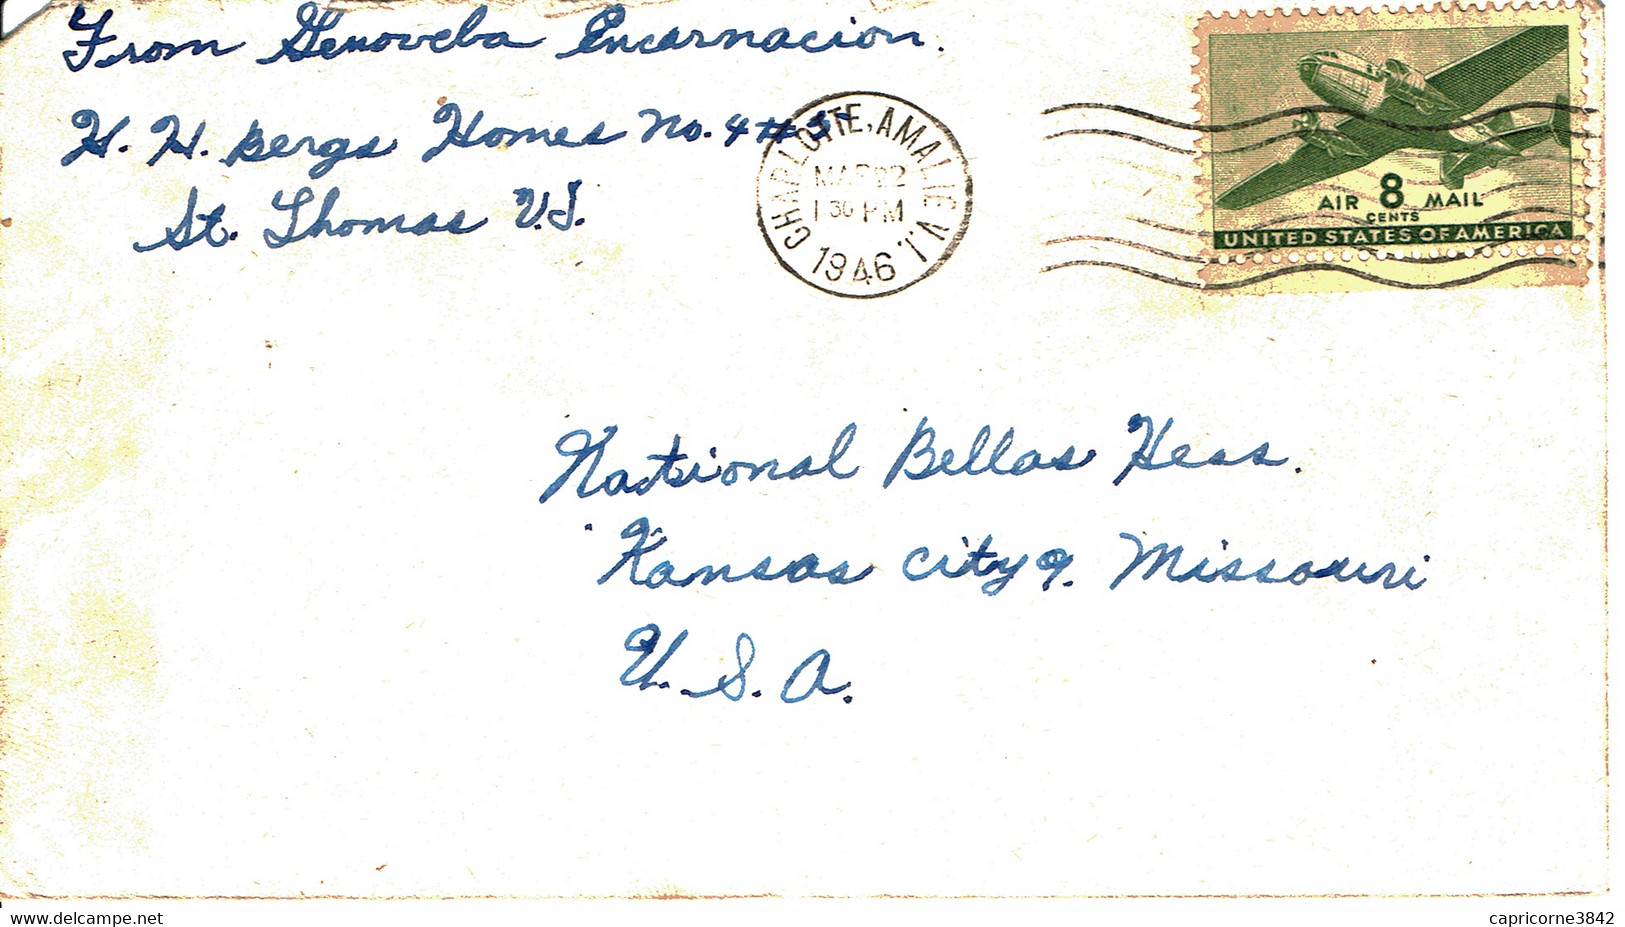 From Genoveba Encarnacion.
H. H. Bergs Homes No. 4 # 5
St. Thomas V.I.
CHARLOTTE AMALIE, V.I.
MAR 22
1 30 PM
1946
AIR 8 MAIL
CENTS
UNITED STATES OF AMERICA
National Bellas Hess.
Kansas City 9. Missouri
U. S. A.
delcampe.net
capricorne3842